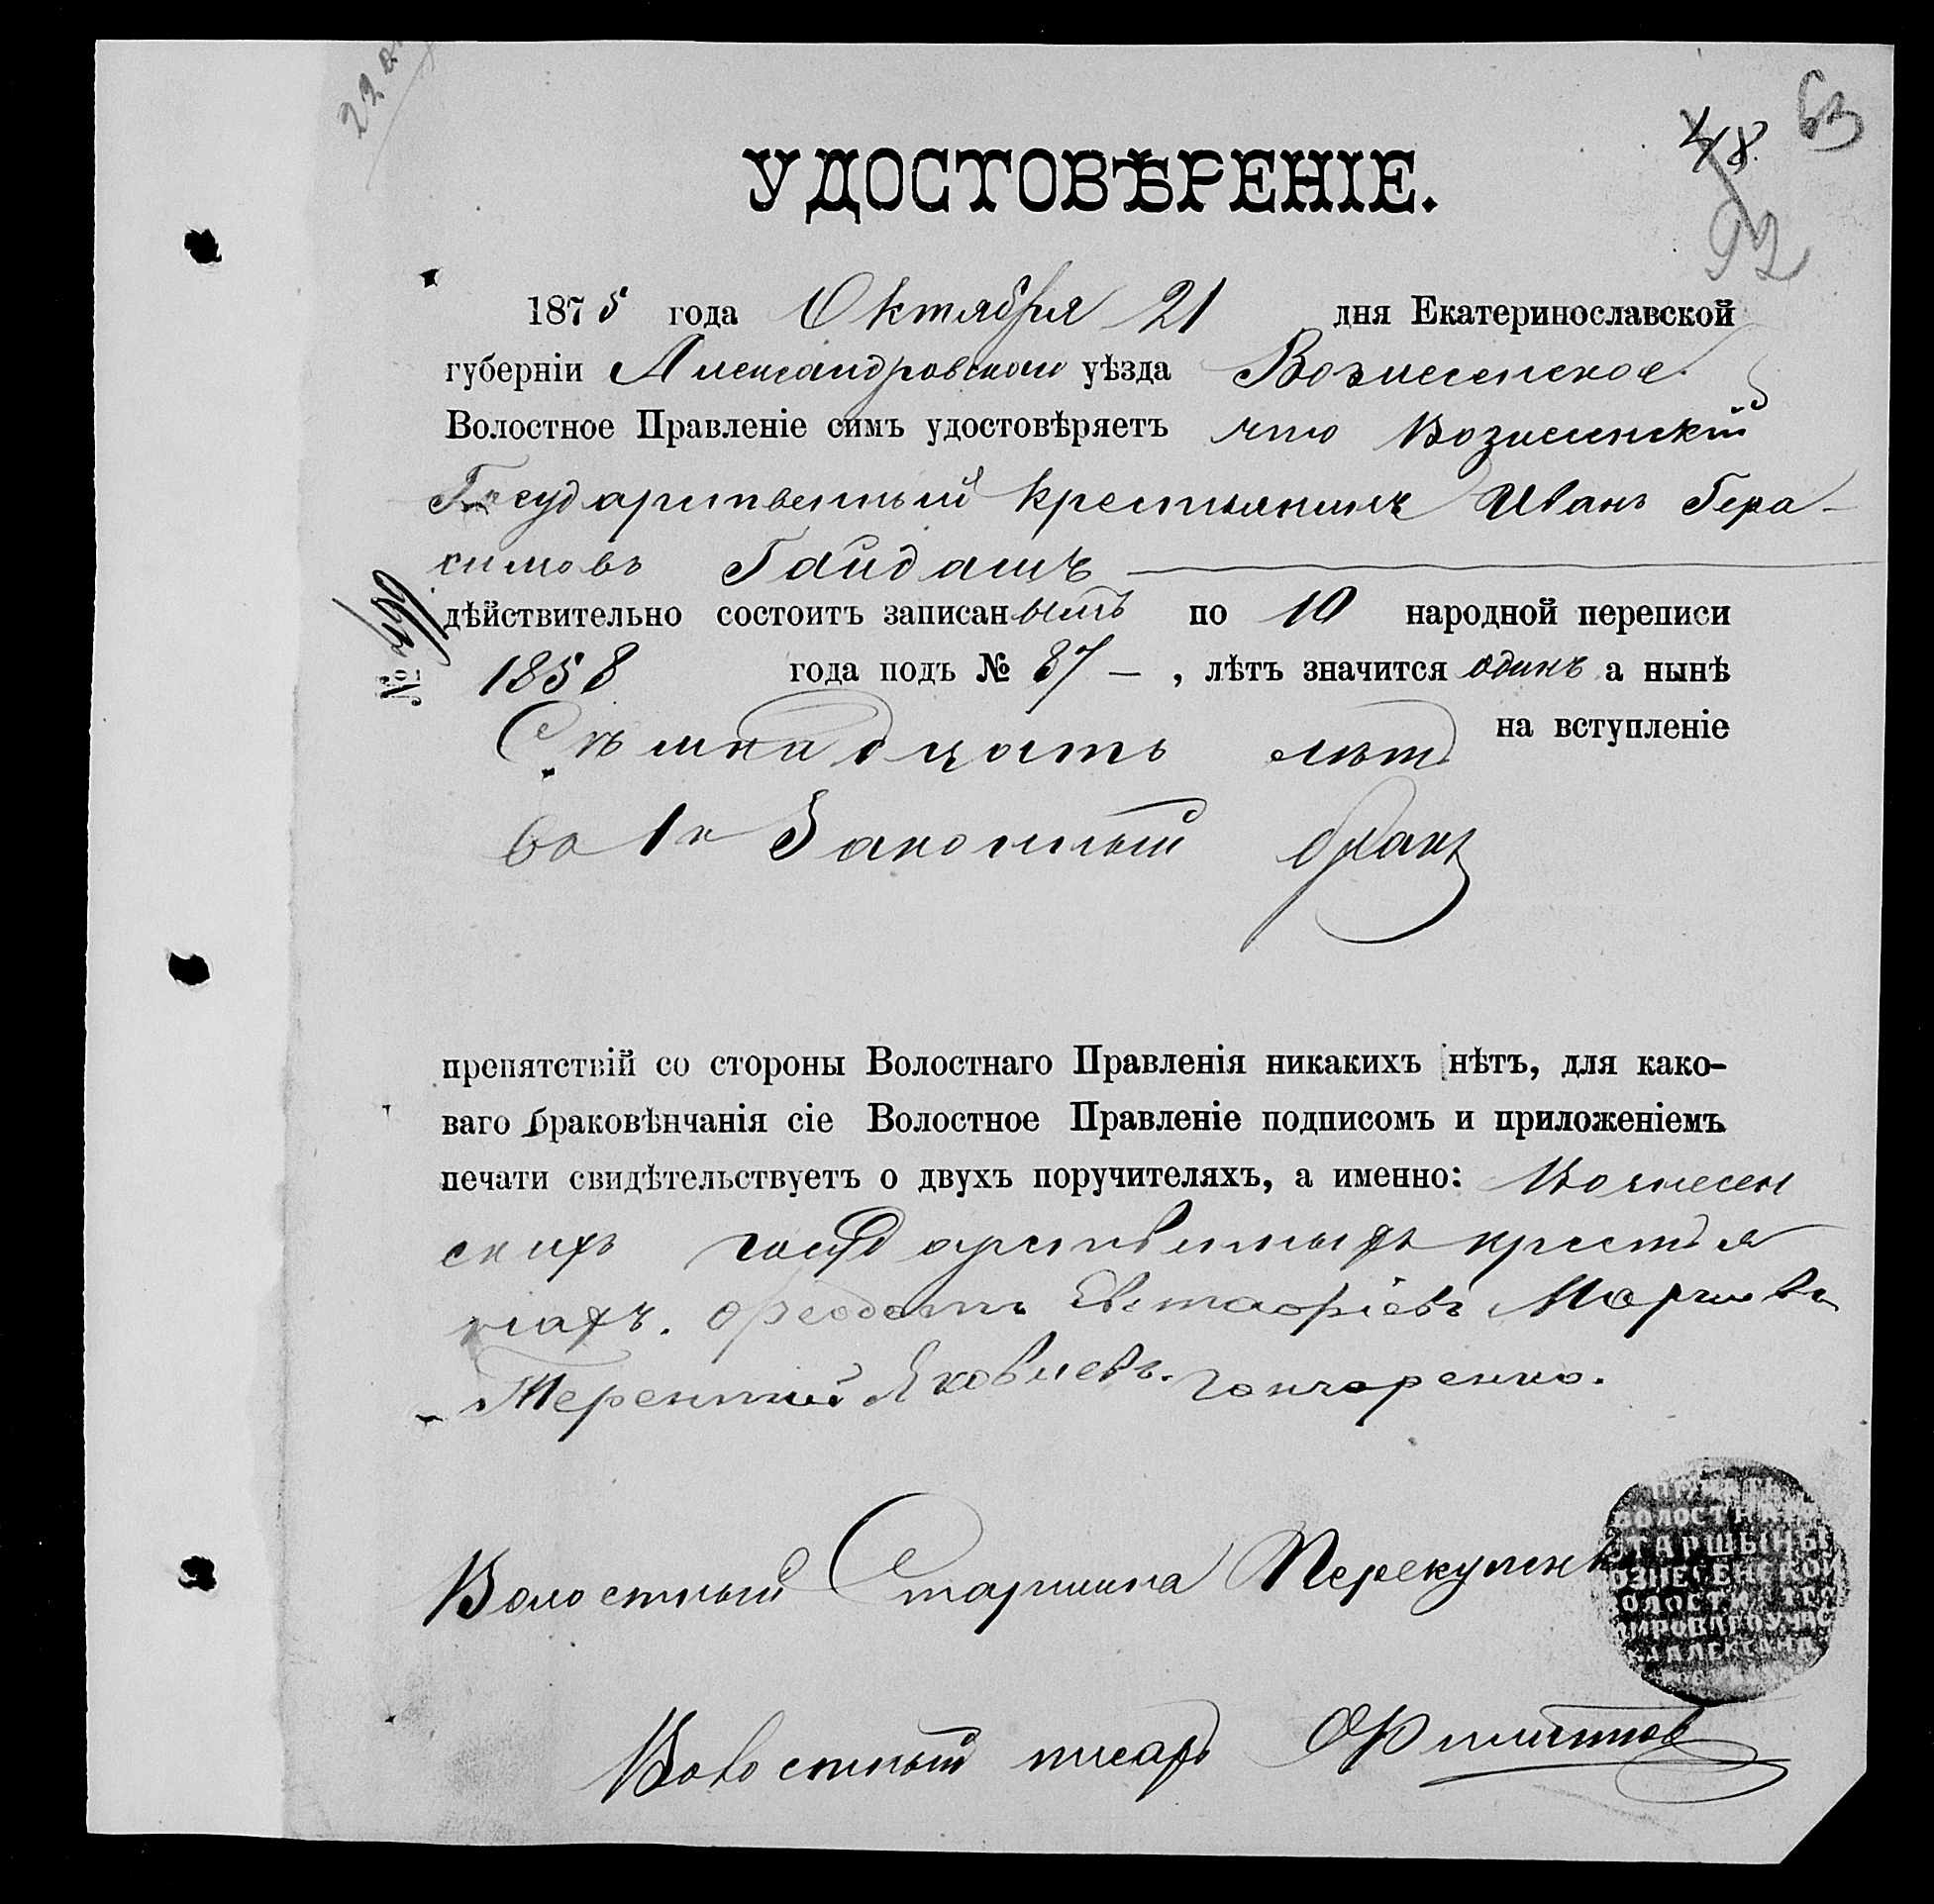 22
63
48.
92
УДОСТОВѢРЕНІЕ.
1875 года Октября 21 дня Екатеринославской
губерніи Александровскаго уѣзда Вознесенское
Волостное Правленіе симъ удостовѣряетъ что Вознесенскій
Государственный крестьянинъ Иванъ Гера-
симовъ Гайдашъ
дѣйствительно состоитъ записаннымъ по 10 народной переписи
№
1858 года подъ № 87 — , лѣтъ значится одинъ а нынѣ
Съмнадцать лѣтъ на вступленіе
во 1й Законный бракъ
препятствій со стороны Волостнаго Правленія никакихъ нѣтъ, для како-
ваго браковѣнчанія сіе Волостное Правленіе подписомъ и приложеніемъ
печати свидѣтельствуетъ о двухъ поручителяхъ, а именно: Вознесен
скихъ государственныхъ крестья
нахъ. Феодотъ Евстафіевъ
Терентий Яковлевъ. Гончаренко.
Волостный Старшина
ВОЛОСТНАГО
СТАРШИНЫ
ВОЗНЕСЕНСКОЙ
ВОЛОСТИ
Волостный писарь Филиппов